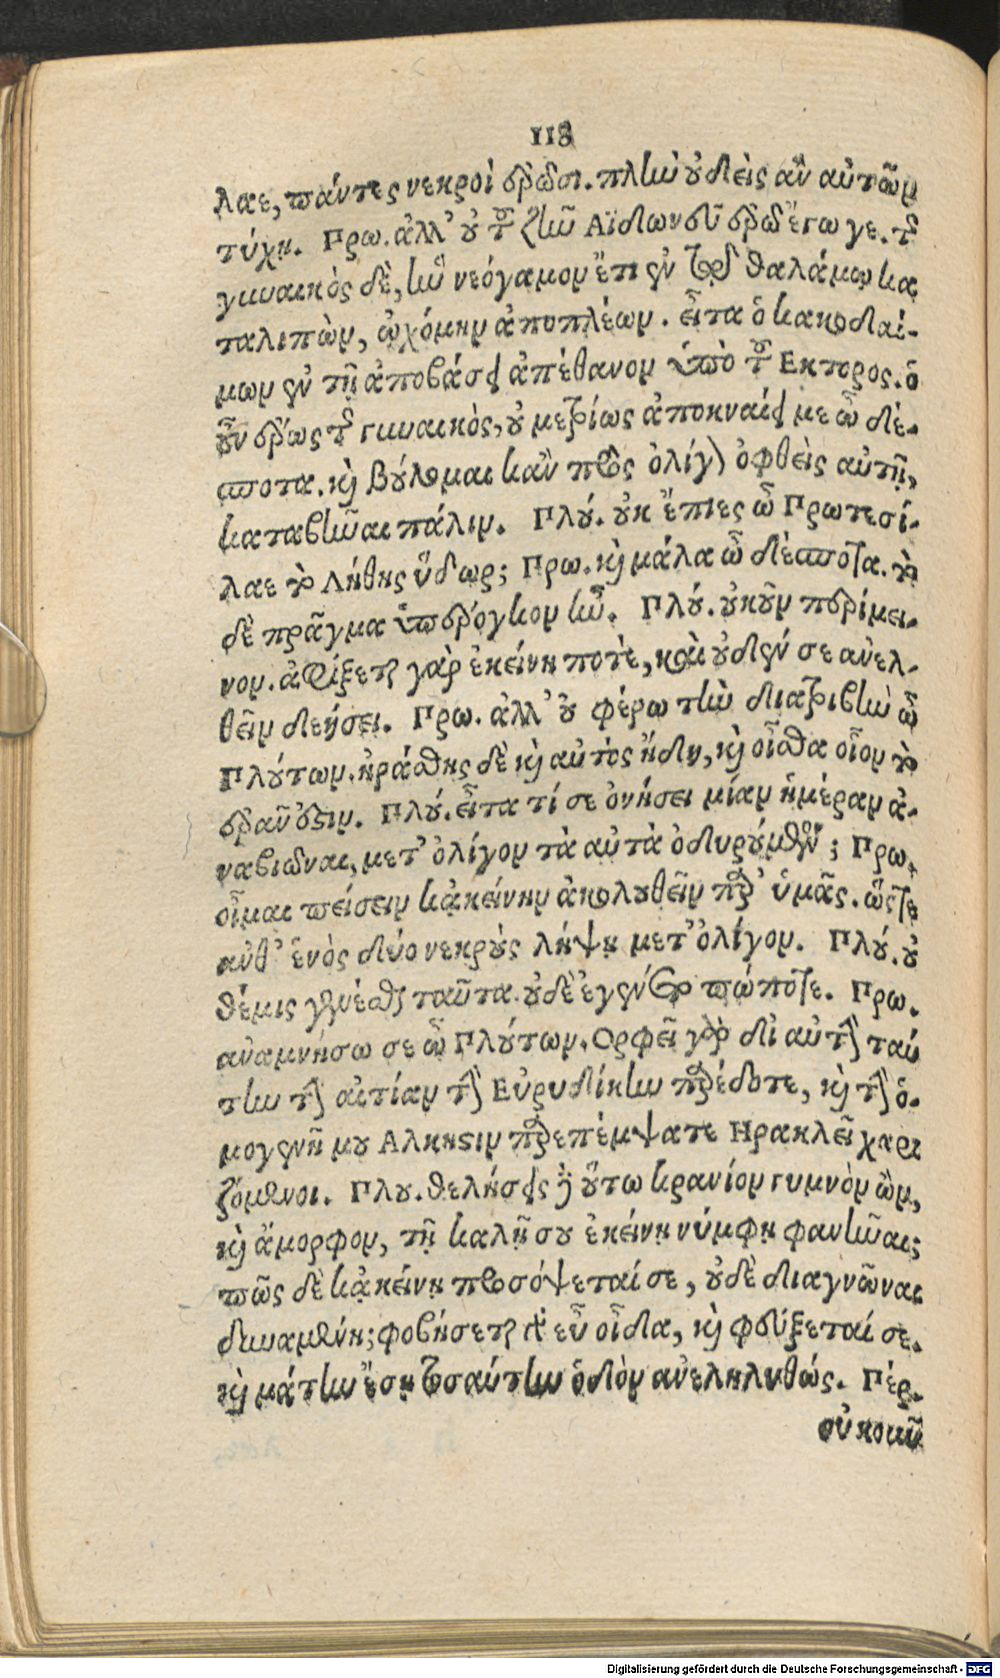 118
λαε, πάντες νεκροὶ ἐρῶσι. πλὴν οὐδεὶς ἂν αὐτῶν
τύχῃ. Πρω. ἀλλ' οὐ τοῦ ζῆν Αϊδωνεῦ ἐρῶ ἔγωγε. τῆς
γυναικὸς δὲ, ἣν νεόγαμον ἔτι ἐν τῷ θαλάμῳ κα
ταλιπὼν, ᾠχόμην ἀποπλέων. εἶτα ὁ κακοδαί-
μων ἐν τῇ ἀποβάσει ἀπέθανον ὑπὸ τοῦ Εκτορος. ὁ
οὖν ἔρως τῆς γυναικὸς, οὐ μετρίως ἀποκναίει με ὦ δέ-
σποτα. καὶ βούλομαι κἂν πρὸς ὀλίγον ὀφθεὶς αὐτῇ,
καταβῆναι πάλιν. Πλού. οὐκ ἔπιες ὦ Πρωτεσί-
λαε τὸ Λήθης ὕδωρ; Πρω. καὶ μάλα ὦ δέσποτα. τὸ
δὲ πρᾶγμα ὑπέρογκον ἦν. Πλού. οὐκοῦν περίμει-
νον. ἀφίξεται γὰρ ἐκείνη ποτὲ, καὶ οὐδὲν σε ἀνελ-
θεῖν δεήσει. Πρω. ἀλλ' οὐ φέρω τὴν διατριβὴν ὦ
Πλούτων. ἠράσθης δὲ καὶ αὐτὸς ἤδη, καὶ οἶσθα οἷον τὸ
ἐρᾶν ἐστιν. Πλού. εἶτα τί σε ὀνήσει μίαν ἡμέραν ἀ-
ναβιῶναι, μετ' ὀλίγον τὰ αὐτὰ ὀδυρούμενον; Πρω.
οἶμαι πείσειν κἀκείνην ἀκολουθεῖν παρ' ὑμᾶς. ὥστε
ἀνθ' ἑνὸς δύο νεκροὺς λήψῃ μετ' ὀλίγον. Πλού. οὐ
θέμις γενέσθαι ταῦτα. οὐδὲ ἐγένετο πώποτε. Πρω.
ἀναμνήσω σε ὦ Πλούτων. Ορφεῖ γὰρ δι αὐτὴν ταύ
την τὴν αἰτίαν τὴν Εὐρυδίκην παρέδοτε, καὶ τὴν ὁ-
μογενῆ μου Αλκηστιν παρεπέμψατε Ηρακλεῖ χαρι
ζόμενοι. Πλου. θελήσεις δὲ οὕτω κρανίον γυμνὸν ὢν,
καὶ ἄμορφον, τῇ καλῇ σου ἐκείνῃ νύμφῃ φανῆναι;
πῶς δὲ κἀκείνη προσόψεταί σε, οὐδὲ διαγνῶναι
δυναμένη; φοβήσεται γὰρ εὖ οἶδα, καὶ φεύξεταί σε.
καὶ μάτην ἔσῃ τοσαύτην ὁδὸν ἀνεληλυθώς. Πέρ.
οὐκοῦν